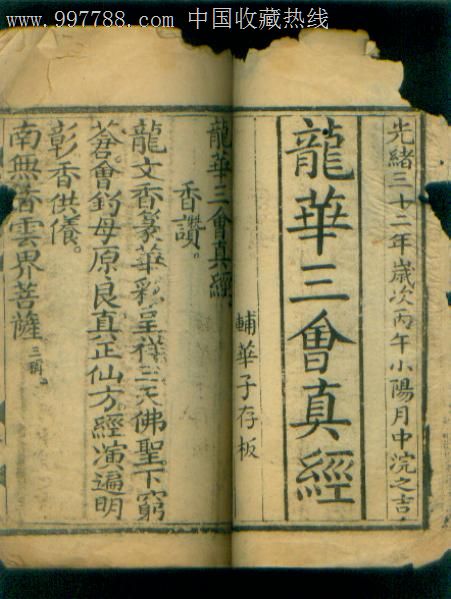 www.997788.com 中国收藏热线
光緒三十二年歲次丙午小陽月中浣之吉
龍華三會真經
輔華子存板
龍華三會真經
香讚。
龍文香篆華彩呈祥三天佛聖下窮
蒼會鈞母原良真正仙方經演遍明
彰香供養。
南無香雲界菩薩三稱。